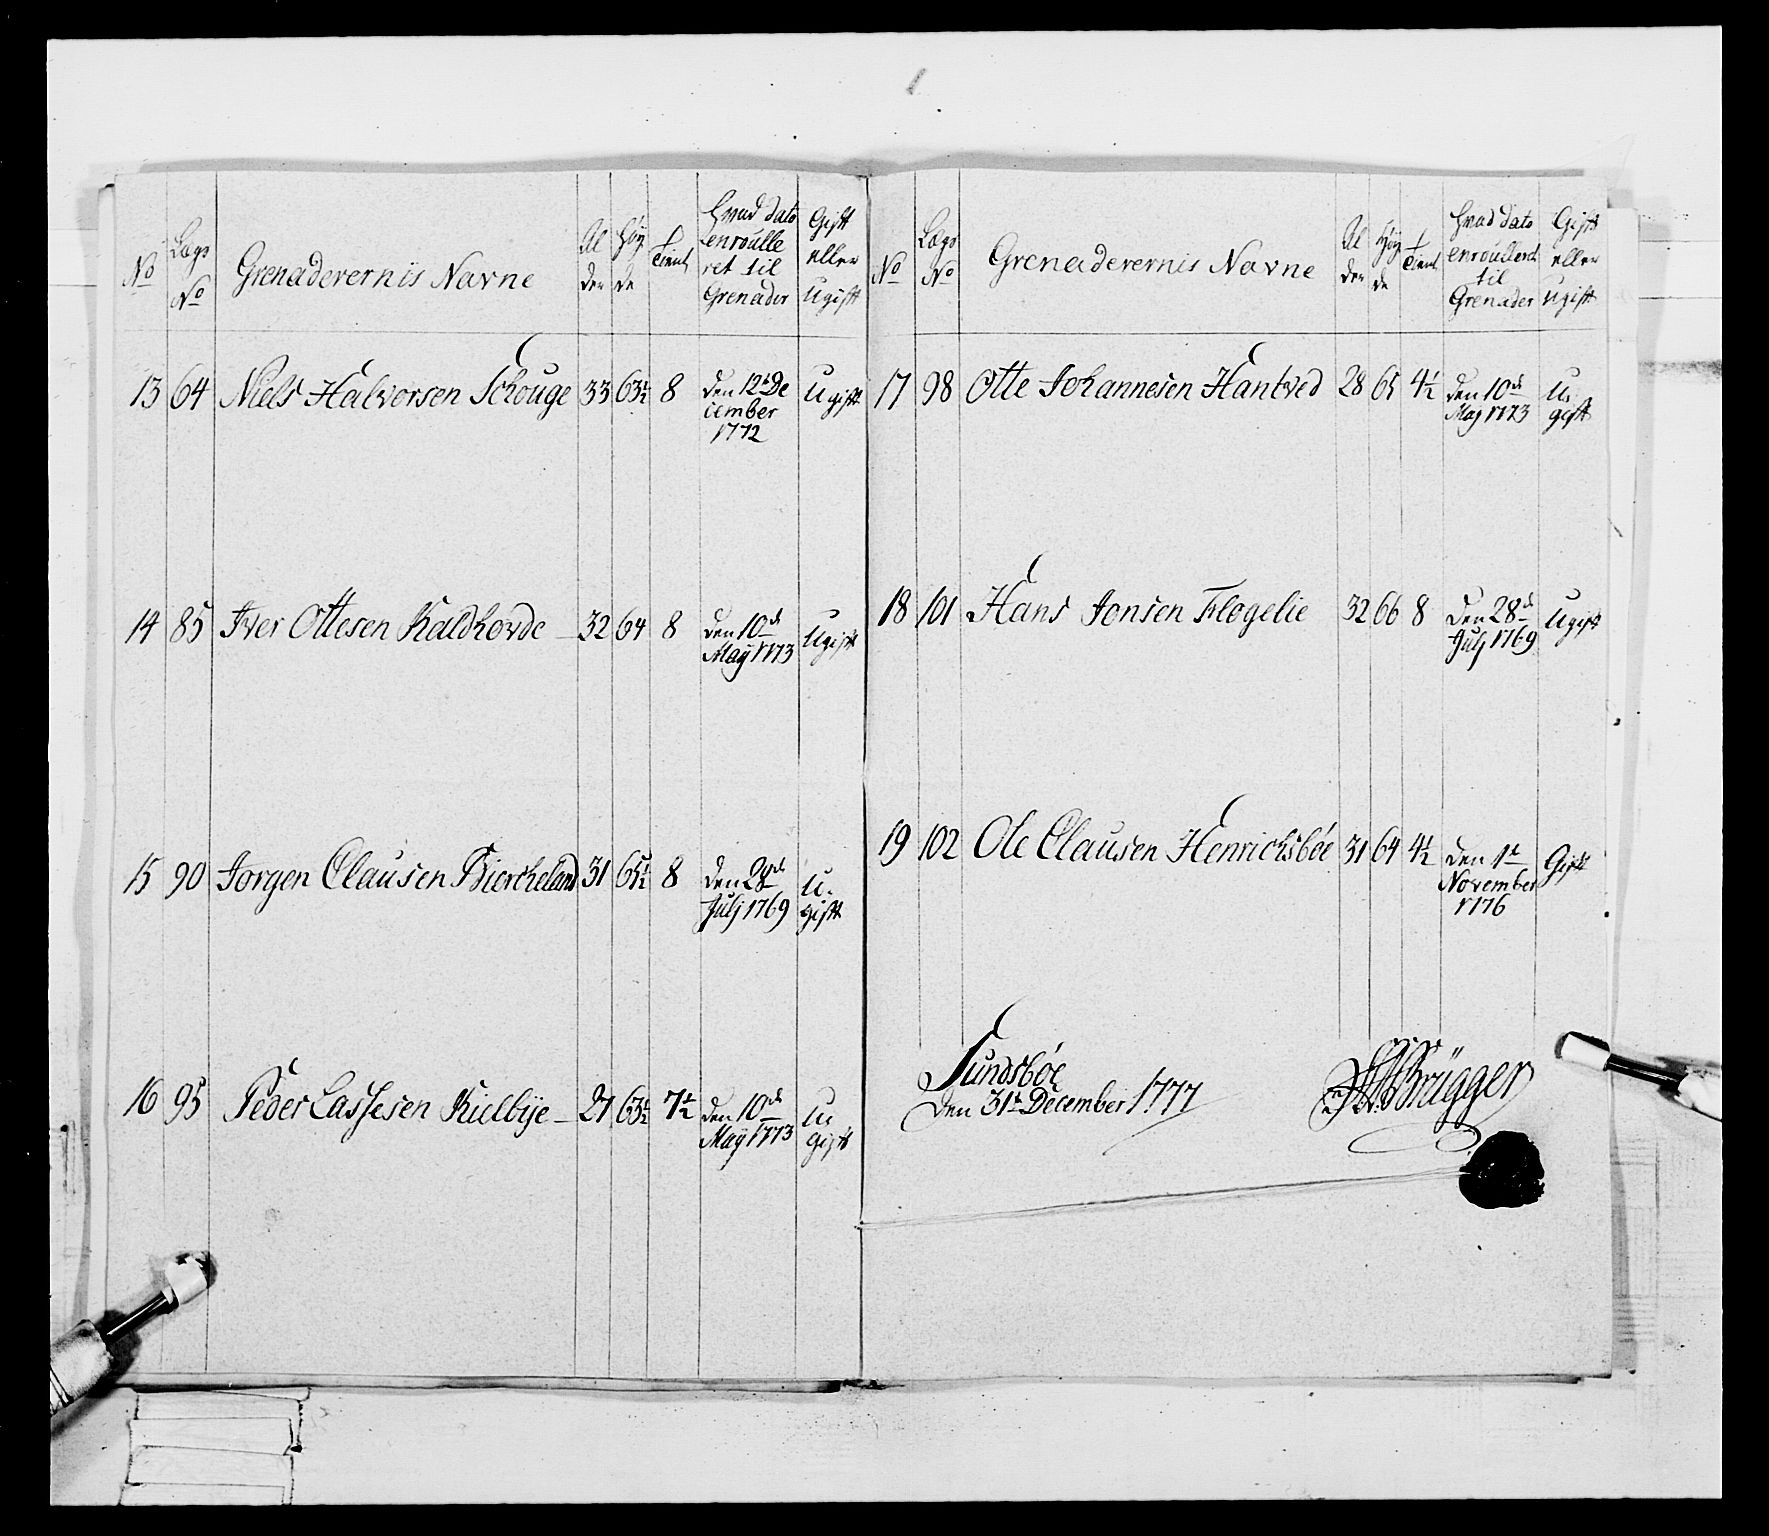 No Lægs No Grenaderernis Navne Alder Høyde Tient Hvad dato enroulleret til Grenader Gift eller Ugift
13 64 Niels Halvorsen Schouge 33 63½ 8 den 12t De Ugift
cember
1772
14 85 Iver Ottesen Kaldhovde 32 64 8 den 10de Ugift
May 1773
15 90 Jorgen Clausen Biercheland 31 65½ 8 den 28de U.
Julj 1769 gift
16 95 Peder Lassesen Kielbye 27 63½ 7½ den 10de U,
May 1773 gift
No Lægs No Grenaderernis Navne Alder Høyde Tient Hvad dato enroullerit til Grenader Gift eller Ugift
17 98 Otte Johannesen Hantved 28 65 4½ den 10de U,
Maj 1773 gift
18 101 Hans Jonsen Flogelie 32 66 8 Den 28de Ugift
Julj 1769
19 102 Ole Clausen Henrichsböe 31 64 4½ den 1t Gift
November
1776
Sundsböe
Den 31t December 1777
Brügger